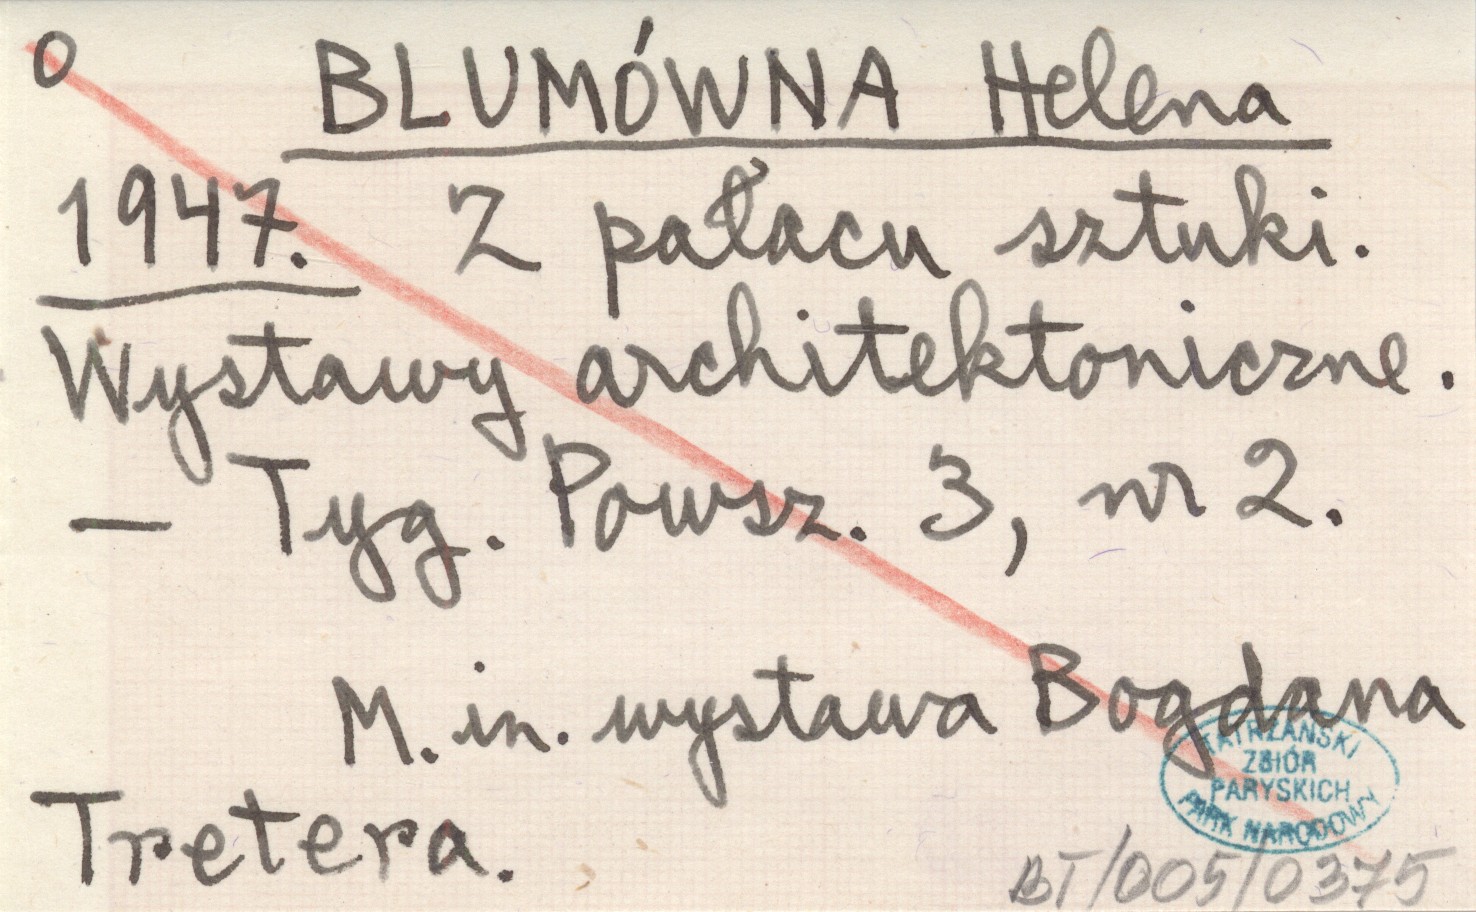 O BLUMÓWNA Helena
1947. Z pałacu sztuki.
Wystawy architektoniczne.
— Tyg. Powsz. 3, nr 2.
M. in. wystawa Bogdana
Tretera.
TATRZAŃSKI
ZBIÓR
PARYSKICH
PARK NARODOWY
BT/005/0375